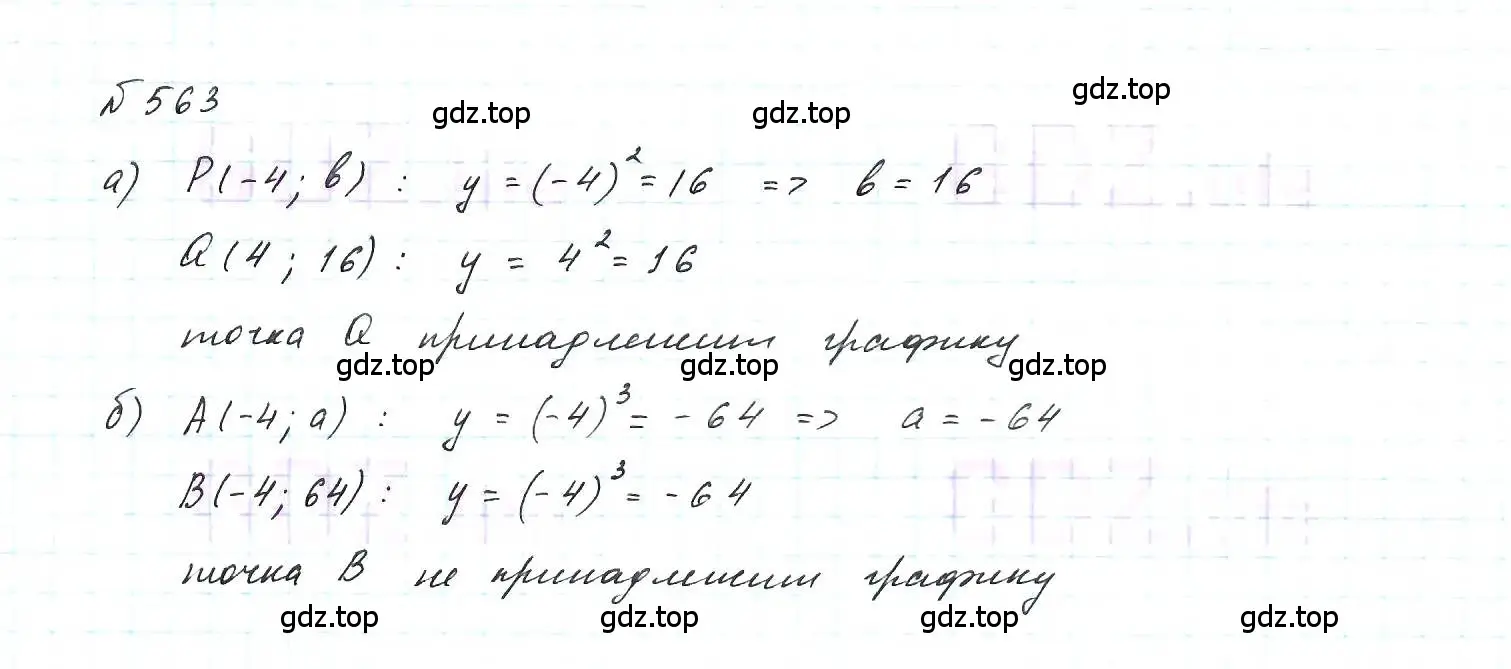 № 563
gdz.top gdz.top gdz.top
а) P(-4; b) : y = (-4)² = 16 => b = 16
Q(4; 16) : y = 4² = 16
точка Q принадлежит графику
gdz.top gdz.top gdz.top
б) A(-4; a) : y = (-4)³ = -64 => a = -64
B(-4; 64) : y = (-4)³ = -64
точка B не принадлежит графику
gdz.top gdz.top gdz.top gdz.top